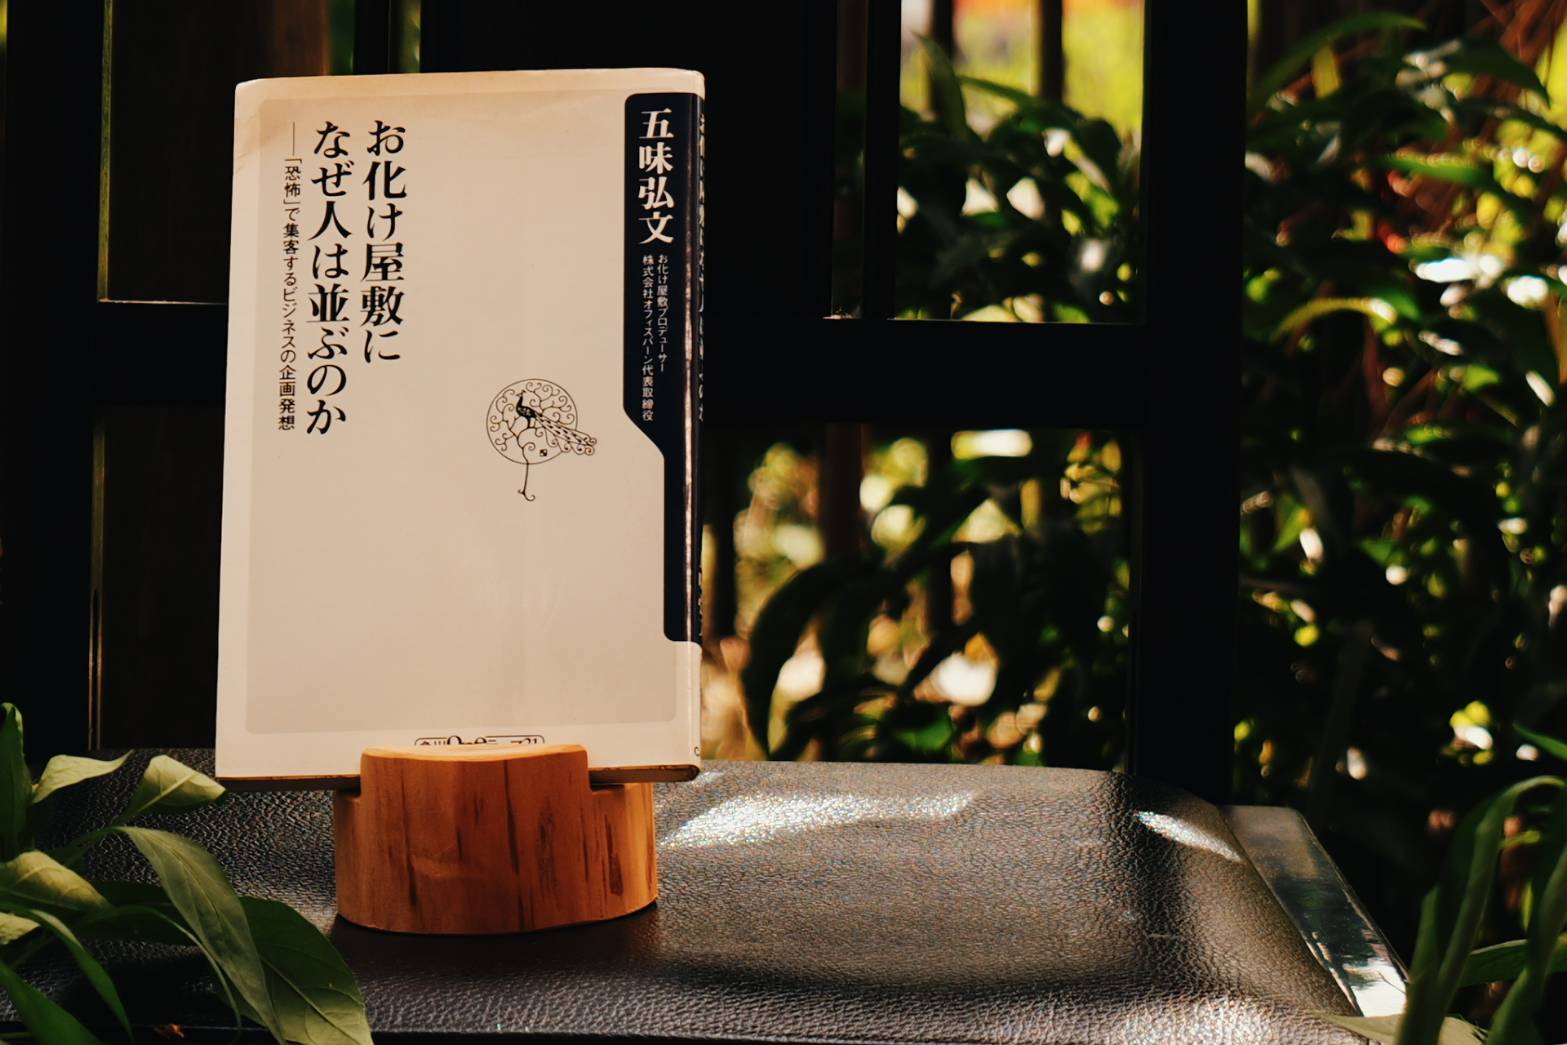 五味弘文
お化け屋敷プロデューサー
株式会社オフィスバーン代表取締役
お化け屋敷に
なぜ人は並ぶのか
──「恐怖」で集客するビジネスの企画発想